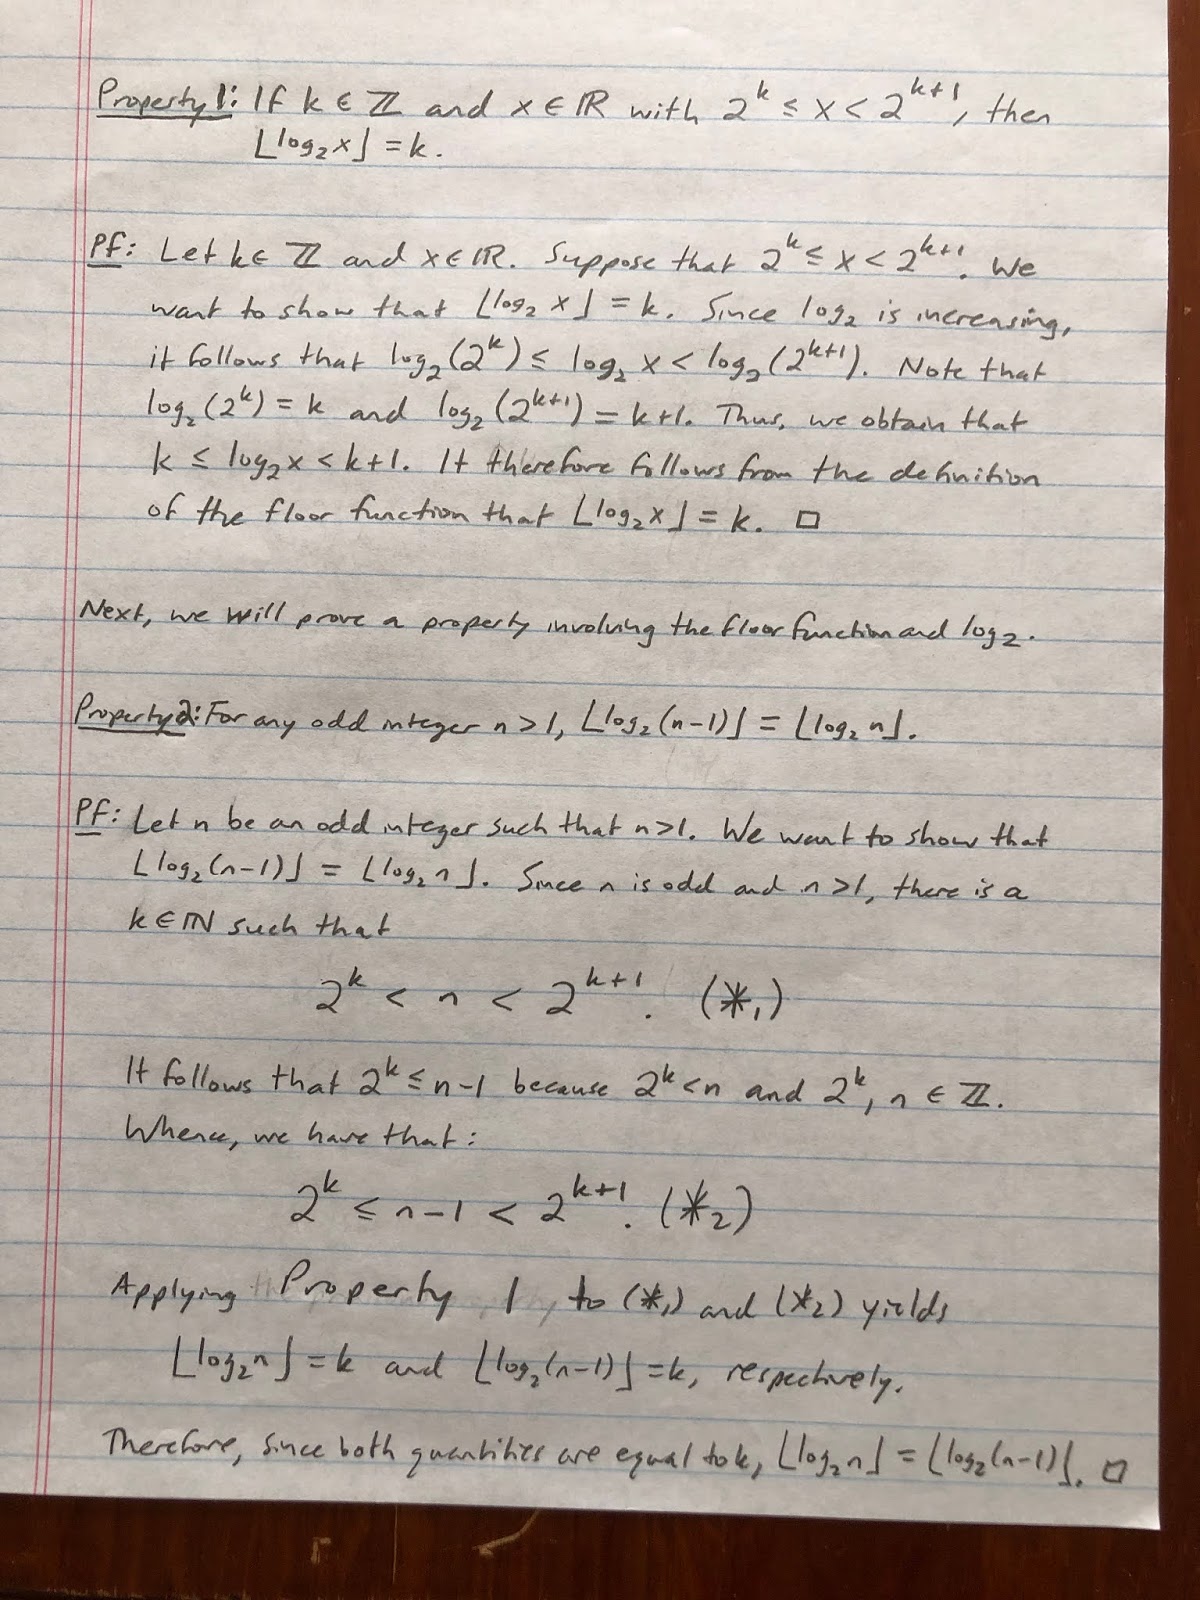 Property 1: If k ∈ ℤ and x ∈ ℝ with 2^k ≤ x < 2^{k+1}, then
⌊log₂x⌋ = k.
Pf: Let k ∈ ℤ and x ∈ ℝ. Suppose that 2^k ≤ x < 2^{k+1}. We
want to show that ⌊log₂ x⌋ = k. Since log₂ is increasing,
it follows that log₂(2^k) ≤ log₂ x < log₂(2^{k+1}). Note that
log₂(2^k) = k and log₂(2^{k+1}) = k+1. Thus, we obtain that
k ≤ log₂x < k+1. It therefore follows from the definition
of the floor function that ⌊log₂x⌋ = k. □
Next, we will prove a property involving the floor function and log₂.
Property 2: For any odd integer n > 1, ⌊log₂(n-1)⌋ = ⌊log₂ n⌋.
Pf: Let n be an odd integer such that n>1. We want to show that
⌊log₂(n-1)⌋ = ⌊log₂ n⌋. Since n is odd and n>1, there is a
k ∈ ℕ such that
2^k < n < 2^{k+1}. (*₁)
It follows that 2^k ≤ n-1 because 2^k < n and 2^k, n ∈ ℤ.
Whence, we have that:
2^k ≤ n-1 < 2^{k+1}. (*₂)
Applying Property 1 to (*₁) and (*₂) yields
⌊log₂n⌋ = k and ⌊log₂(n-1)⌋ = k, respectively.
Therefore, since both quantities are equal to k, ⌊log₂n⌋ = ⌊log₂(n-1)⌋. □